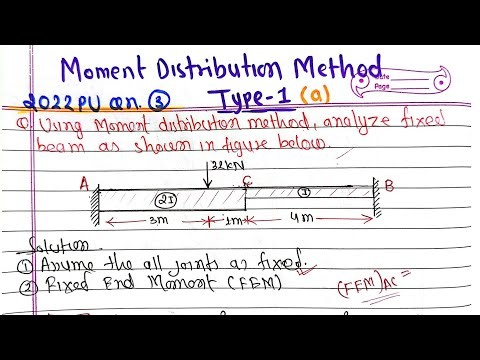 Moment Distribution Method
Date
Page
2022 PU Qn. ③ Type-1 (a)
Q. Using Moment distribution method, analyze fixed
beam as shown in figure below.
32kN
A C B
2I I
3m 1m 4m
Solution
① Assume the all joints as fixed.
② Fixed End Moment (FEM)
(FEM)AC =